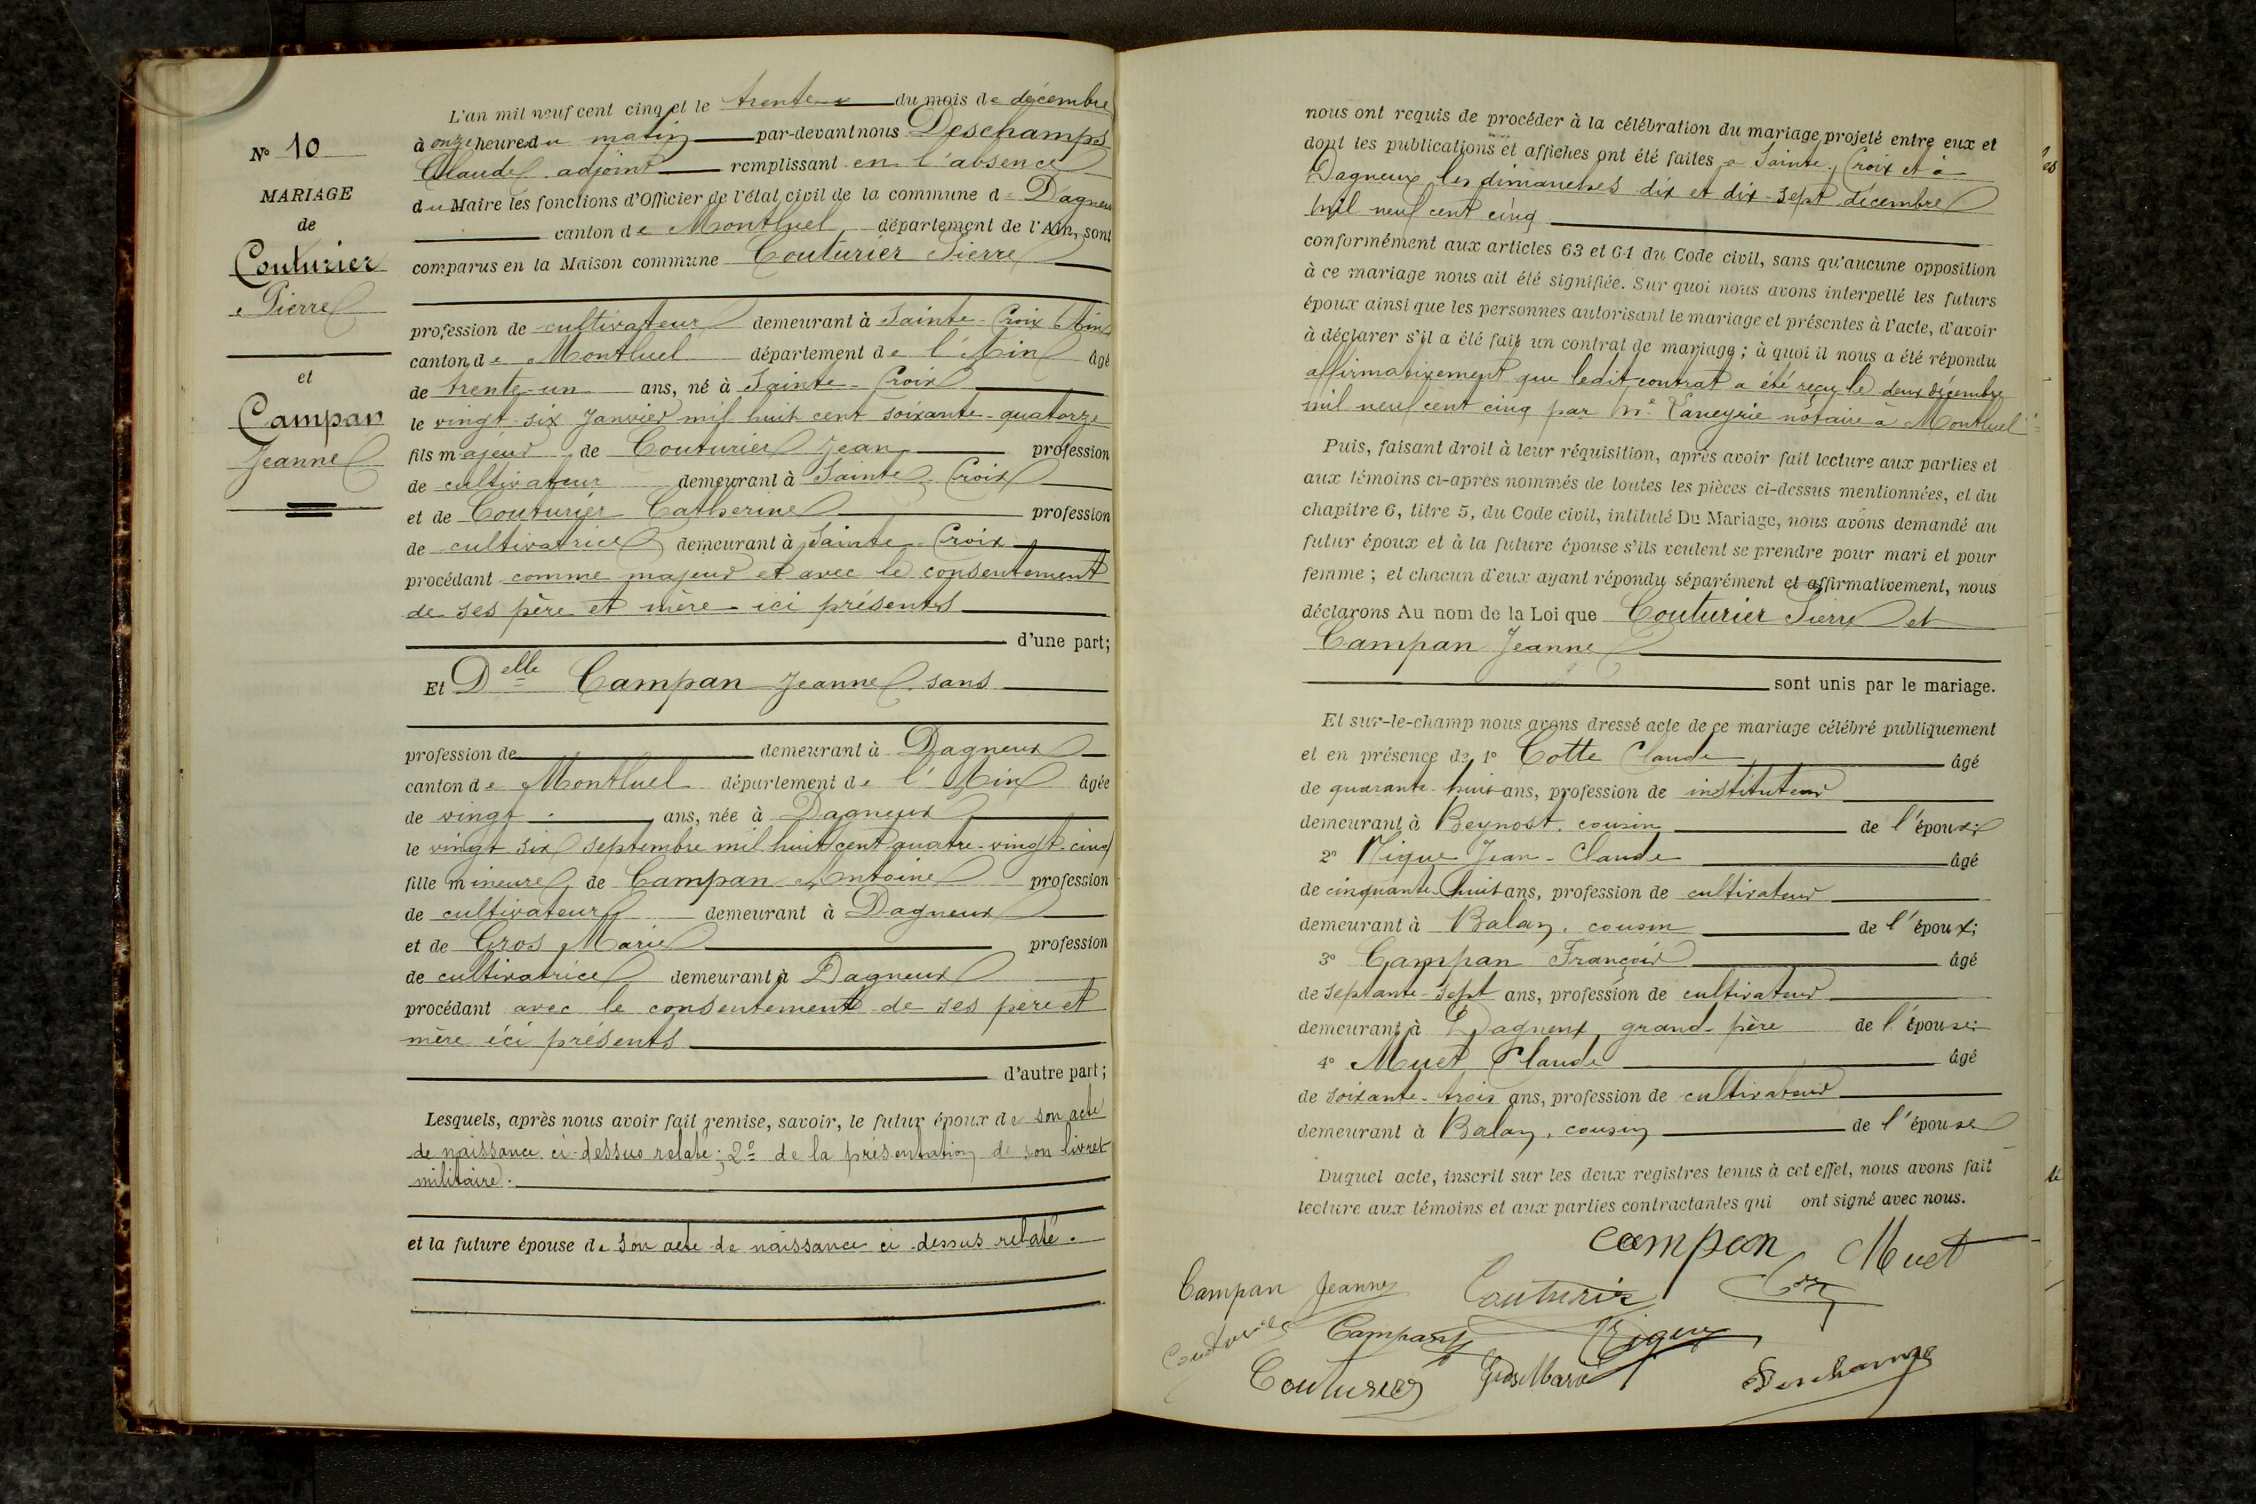 N° 10
MARIAGE
de
Couturier
Pierre
et
Campan
Jeanne
L'an mil neuf cent cinq et le trente du mois de décembre
à onze heures du matin par-devant nous Deschamps
Claude adjoint remplissant en l'absence
du Maire les fonctions d'Officier de l'état civil de la commune de Dagneux
canton de Montluel département de l'Ain, sont
comparus en la Maison commune Couturier Pierre
profession de cultivateur demeurant à Sainte-Croix (Ain)
canton de Montluel département de l'Ain âgé
de trente-un ans, né à Sainte-Croix
le vingt-six Janvier mil huit cent soixante-quatorze
fils majeur de Couturier Jean profession
de cultivateur demeurant à Sainte-Croix
et de Couturier Catherine profession
de cultivatrice demeurant à Sainte-Croix
procédant comme majeur et avec le consentement
de ses père et mère ici présents
d'une part;
Et Delle Campan Jeanne sans
profession de demeurant à Dagneux
canton de Montluel département de l'Ain âgée
de vingt ans, née à Dagneux
le vingt six septembre mil huit cent quatre-vingt-cinq
fille mineure de Campan Antoine profession
de cultivateur demeurant à Dagneux
et de Gros Marie profession
de cultivatrice demeurant à Dagneux
procédant avec le consentement de ses père et
mère ici présents
d'autre part;
Lesquels, après nous avoir fait remise, savoir, le futur époux de son acte
de naissance ci-dessus relaté; 2° de la présentation de son livret
militaire.
et la future épouse de son acte de naissance ci-dessus relaté.
nous ont requis de procéder à la célébration du mariage projeté entre eux et
dont les publications et affiches ont été faites à Sainte-Croix et à
Dagneux les dimanches dix et dix-sept décembre
mil neuf cent cinq
conformément aux articles 63 et 64 du Code civil, sans qu'aucune opposition
à ce mariage nous ait été signifiée. Sur quoi nous avons interpellé les futurs
époux ainsi que les personnes autorisant le mariage et présentes à l'acte, d'avoir
à déclarer s'il a été fait un contrat de mariage; à quoi il nous a été répondu
affirmativement que ledit contrat a été reçu le deux décembre
mil neuf cent cinq par Me notaire à Montluel
Puis, faisant droit à leur réquisition, après avoir fait lecture aux parties et
aux témoins ci-après nommés de toutes les pièces ci-dessus mentionnées, et du
chapitre 6, titre 5, du Code civil, intitulé Du Mariage, nous avons demandé au
futur époux et à la future épouse s'ils veulent se prendre pour mari et pour
femme; et chacun d'eux ayant répondu séparément et affirmativement, nous
déclarons Au nom de la Loi que Couturier Pierre et
Campan Jeanne
sont unis par le mariage.
Et sur-le-champ nous avons dressé acte de ce mariage célébré publiquement
et en présence de 1° Cotte Claude âgé
de quarante-huit ans, profession de instituteur
demeurant à Beynost, cousin de l'époux;
2° Nique Jean-Claude âgé
de cinquante-huit ans, profession de cultivateur
demeurant à Balan, cousin de l'époux;
3° Campan François âgé
de septante-sept ans, profession de cultivateur
demeurant à Dagneux, grand-père de l'épouse;
4° Muet Claude âgé
de soixante-trois ans, profession de cultivateur
demeurant à Balan, cousin de l'épouse
Duquel acte, inscrit sur les deux registres tenus à cet effet, nous avons fait
lecture aux témoins et aux parties contractantes qui ont signé avec nous.
campan Muet
Campan Jeanne Couturier
Couturier Campan Nique
Couturier Gros Marie Deschamps